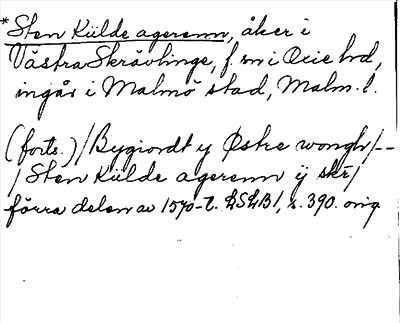 *Sten Külde agerenn, åker i
Västra Skrävlinge, f. sn i Oxie hd,
ingår i Malmö stad, Malm. l.
(forts.) / Bygiordt y Østre wongh / --
/ Sten Külde agerenn ÿ skr /
förra delen av 1570-t. LSLB1, s. 390. orig